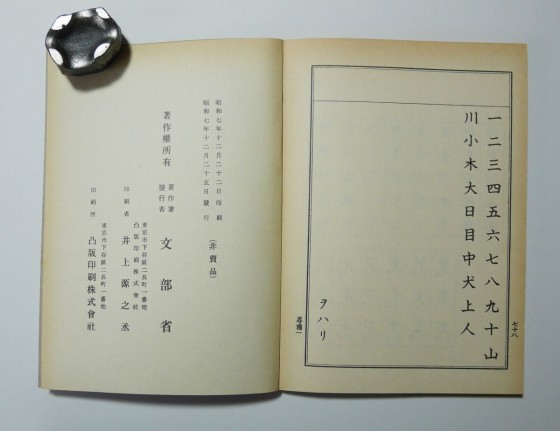 一二三四五六七八九十山
川小木大日目中犬上人
ヲハリ
七十八
尋國一
昭和七年十二月二十二日印刷
昭和七年十二月二十五日發行
(非賣品)
著作權所有
著作兼
發行者
文部省
東京市下谷區二長町一番地
凸版印刷株式會社
印刷者
井上源之丞
東京市下谷區二長町一番地
印刷所
凸版印刷株式會社